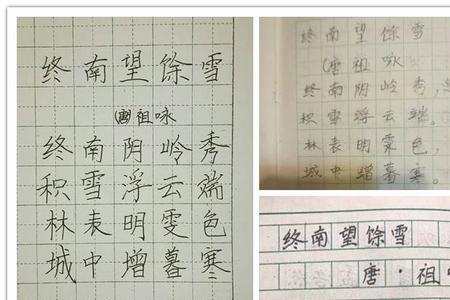 终南望馀雪
(唐)祖咏
终南阴岭秀
积雪浮云端
林表明雯色
城中增暮寒
终南望馀雪
(唐祖咏
终南阴岭秀，
积雪浮云端。
林表明霁色，
城中增暮寒。
终南望馀雪
唐·祖